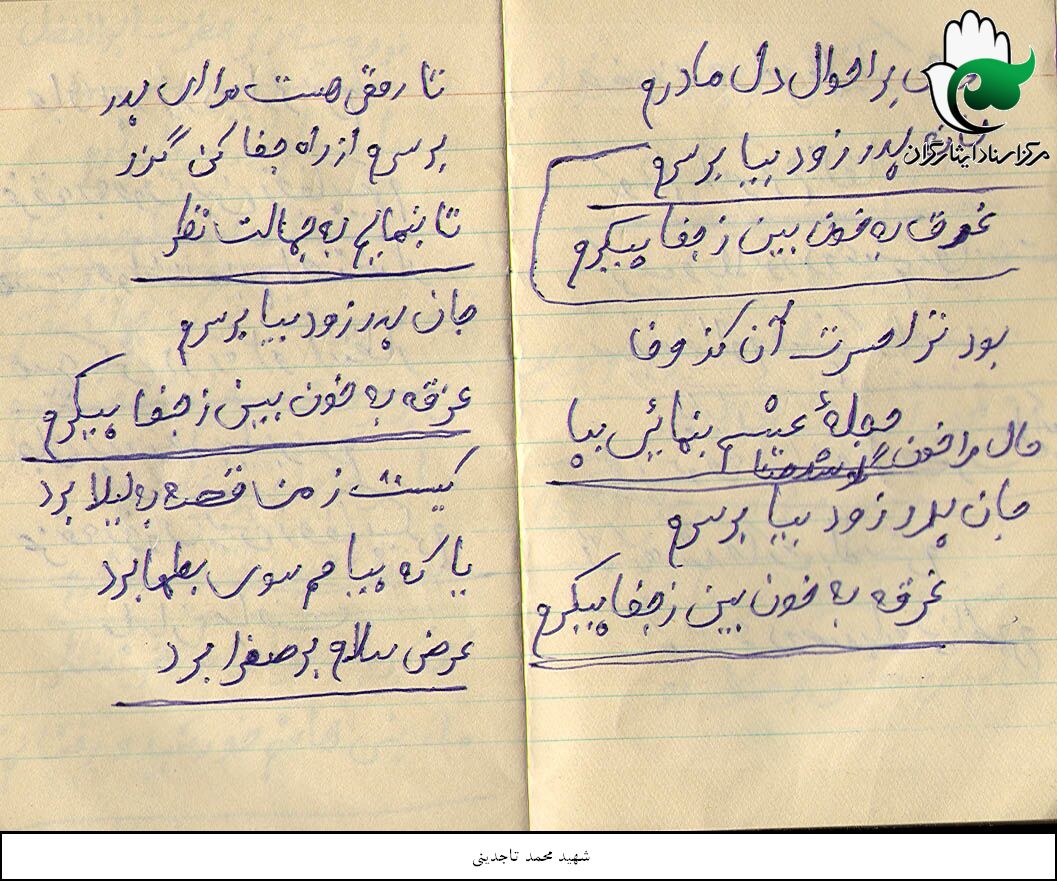 بر احوال دل مادرم
پدر زود بیا برسرم
غرق به خون بین ز جفا پیکرم
بود ترا حسرت آن کز وفا
حجلهٔ عیشم بنمائی بپا
حال مرا خون
جان پدر زود بیا برسرم
غرقه به خون بین ز جفا پیکرم
تا رمقی هست مرا ای پدر
برسرم از راه جفا کن گذر
تا بنمایم به جمالت نظر
جان پدر زود بیا برسرم
غرقه به خون بین ز جفا پیکرم
کیست ز من قصه به لیلا برد
یا که پیامم سوی بطحا برد
عرض سلامم بر صغرا برد
مرکز اسناد ایثارگران
شهید محمد تاجدینی